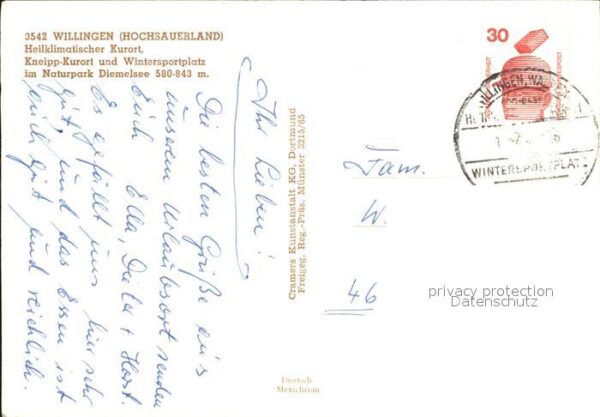 3542 WILLINGEN (HOCHSAUERLAND)
Heilklimatischer Kurort,
Kneipp-Kurort und Wintersportplatz
im Naturpark Diemelsee 580-843 m.
Ihr Lieben!
Die besten Grüße aus
unserem Urlaubsort senden
Euch Ella, Dieter + Horst.
Es gefällt uns hier sehr
gut, und das Essen ist
auch gut und reichlich.
Cramers Kunstanstalt KG. Dortmund
Freigeg. Reg.-Präs. Münster 3215/65
30
WILLINGEN, WA
WINTERSPORTPLATZ
Fam.
W.
46
privacy protection
Datenschutz
Deutsch-
Mexichrom